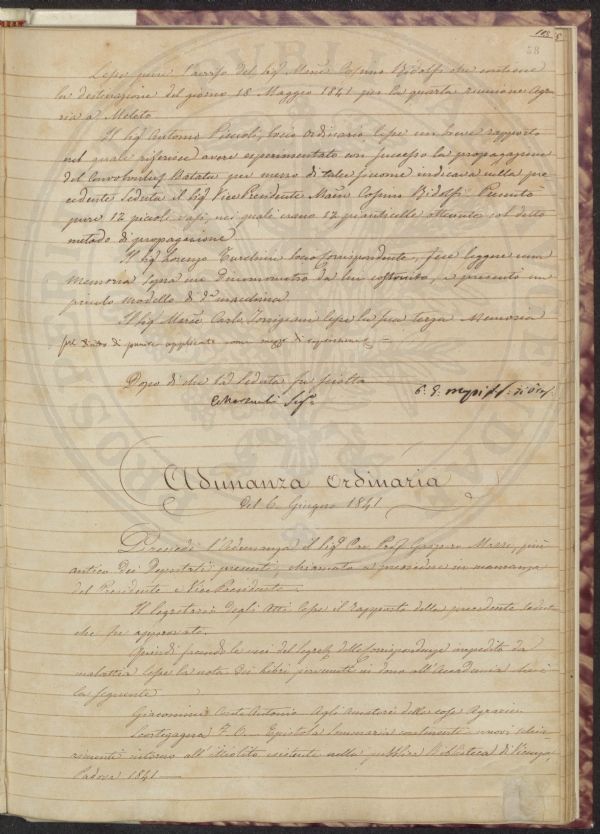 188
58
Lesse quindi l'avviso del Sig. March. Cosimo Ridolfi che contiene
la destinazione del giorno 18 Maggio 1841 per la quarta riunione Agra-
ria a Meleto
Il Sig. Antonio socio ordinario lesse un breve rapporto
nel quale riferisce avere esperimentato con successo la propagazione
del Convolvulus Batatas per mezzo di talee siccome indicava nella pre
cedente Seduta il Sig. Vice Presidente March. Cosimo Ridolfi. Presentò
pure 12 piccoli vasi, nei quali erano 12 pianticelle ottenute col detto
metodo di propagazione
Il Sig. Lorenzo Turchini socio corrispondente, fece leggere una
Memoria sopra un Dinamometro da lui costruito, e presentò un
piccolo modello di d.a macchina
Il Sig. March. Carlo Torrigiani lesse la sua terza Memoria
applicato come mezzo di
Dopo di che la Seduta fu sciolta
Adunanza Ordinaria
Del 6. Giugno 1841
Presiedé l'Adunanza il Sig. Prof. Gaspero Mazzi, più
antico dei Deputati presenti, chiamato a presiedere in mancanza
del Presidente e Vice Presidente.
Il Segretario degli Atti lesse il rapporto della precedente Seduta
che fu approvato.
Quindi facendo le veci del Segret. delle Corrispondenze impedito da
malattia lesse la nota dei libri pervenuti in dono all'Accademia che è
la seguente
Giacomini Antonio Agli amatori delle cose Agrarie
Scortegagna F. O. Epistola contenente nuovi schia-
rimenti intorno all' ittiolito esistente nella pubblica Biblioteca di Vicenza,
Padova 1841